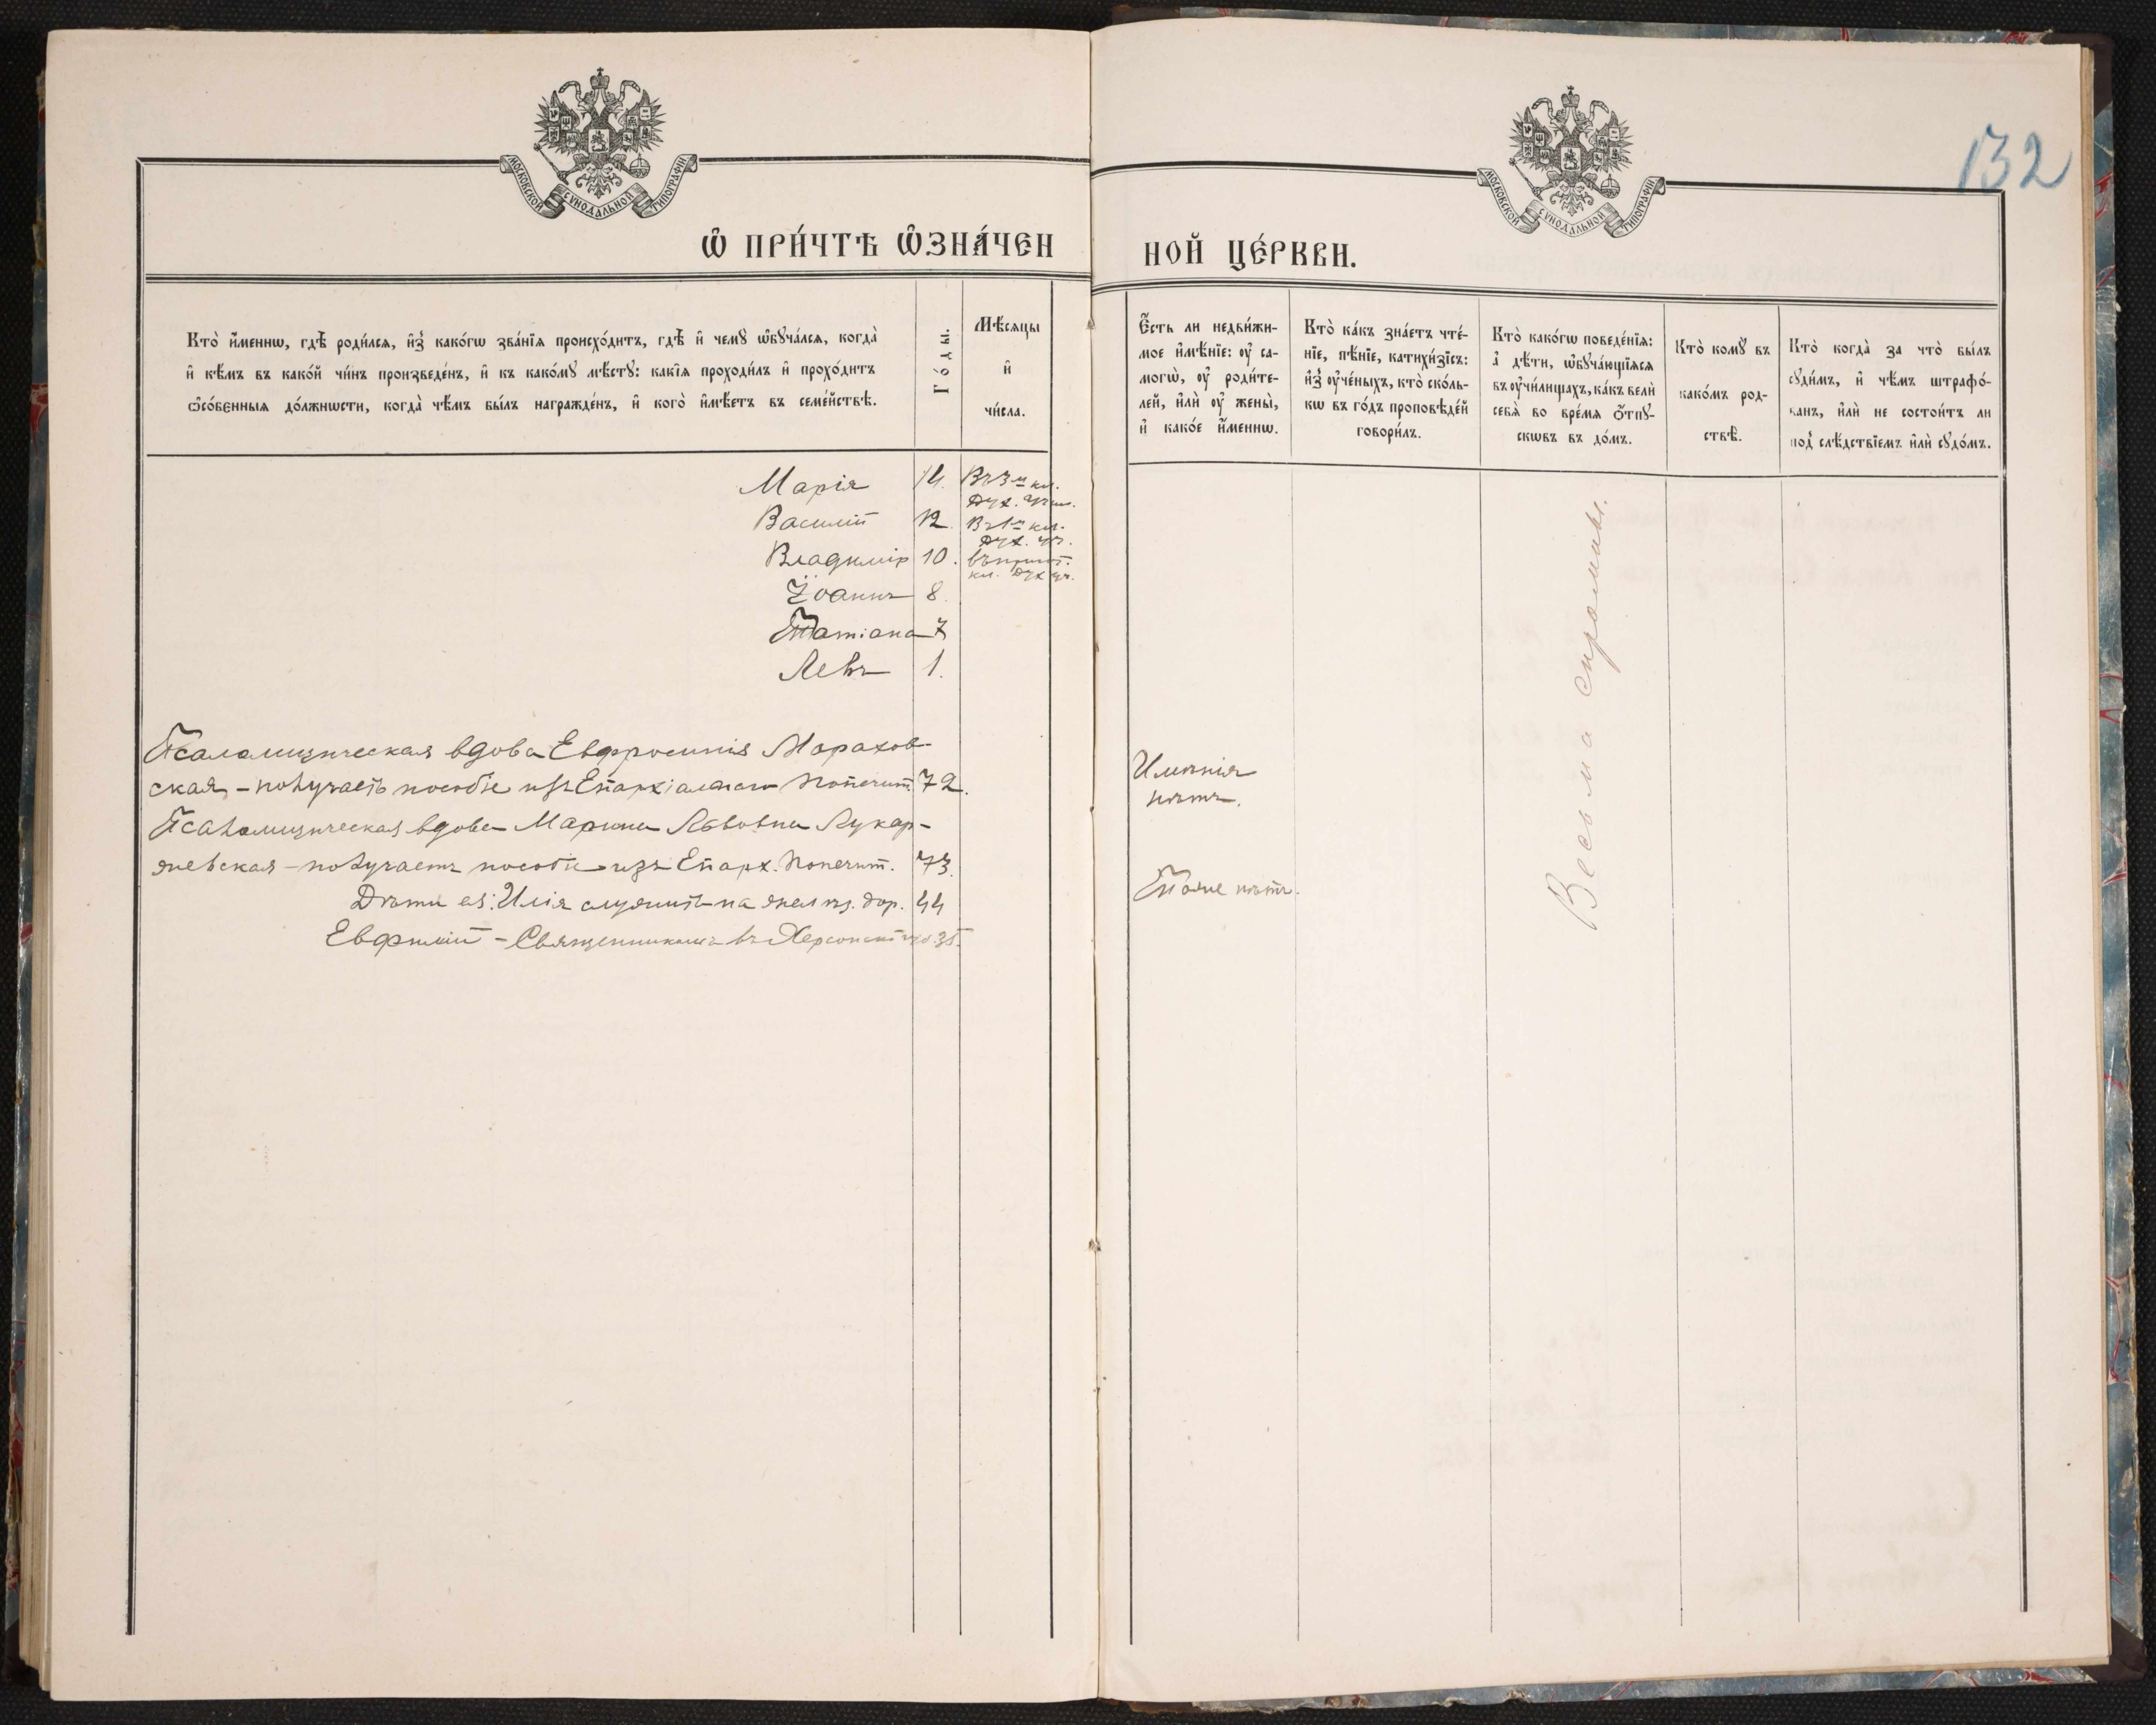 МОСКОВСКОЙ СУНОДАЛЬНОЙ ТИПОГРАФІИ
МОСКОВСКОЙ СУНОДАЛЬНОЙ ТИПОГРАФІИ
132
Ѡ҆ ПРИ́ЧТѢ Ѡ҆ЗНА́ЧЕН
НОЙ ЦЕ́РКВИ.
Кто̀ и҆́меннѡ, гдѣ̀ роди́лсѧ, и҆з̾ како́гѡ зва́нїѧ происхо́дитъ, гдѣ̀ и҆ чемꙋ̀ ѡ҆бꙋча́лсѧ, когда̀
и҆ кѣ́мъ въ како́й чи́нъ произведе́нъ, и҆ къ како́мꙋ мѣ́стꙋ: какі́ѧ проходи́лъ и҆ прохо́дитъ
ѻ҆со́бенныѧ до́лжнѡсти, когда̀ чѣ́мъ бы́лъ награжде́нъ, и҆ кого̀ и҆мѣ́етъ въ семе́йствѣ.
Го́ды.
Мѣ́сѧцы
и҆
чи́сла.
Є҆́сть ли недви́жи-
мое и҆мѣ́нїе: ᲂу҆ са-
могѡ̀, ᲂу҆ роди́те-
лей, и҆лѝ ᲂу҆ жены̀,
и҆ како́е и҆́меннѡ.
Кто̀ ка́къ зна́етъ чте́-
нїе, пѣ́нїе, катихи́зїсъ:
и҆з̾ ᲂу҆че́ныхъ, кто̀ ско́ль-
кѡ въ го́дъ проповѣ́дей
говори́лъ.
Кто̀ како́гѡ поведе́нїѧ:
а҆ дѣ́ти, ѡ҆бꙋча́ющїѧсѧ
въ ᲂу҆чи́лищахъ, ка́къ велѝ
себѧ̀ во вре́мѧ ѿпꙋ-
скѡвъ въ до́мъ.
Кто̀ комꙋ̀ въ
како́мъ род-
ствѣ̀.
Кто̀ когда̀ за что̀ бы́лъ
сꙋди́мъ, и҆ чѣ́мъ штрафо́-
ванъ, и҆лѝ не состои́тъ ли
под̾ слѣ́дствїемъ и҆лѝ сꙋдо́мъ.
Марія 14. Въ 3м кл.
Дух. Учил.
Василій 12. Въ 1м кл.
Дух. уч.
Владиміръ 10. въ пригот.
кл. Дух уч.
Іоаннъ 8.
Татіана 7
Левъ 1.
Псаломщическая вдова Евфросинія Марахов-
ская, - получаетъ пособіе изъ Епархіальнаго Попечит. 72.
Псаломщическая вдова Марина Львовна Лукар-
невская - получаетъ пособіе изъ Епарх. Попечит. 73.
Дѣти ея: Илія служитъ на желѣз. дор. 44
Евфимій - Священникомъ въ Херсонской 35.
Имѣнія
нѣтъ.
Тоже нѣтъ.
Весьма скромныя.